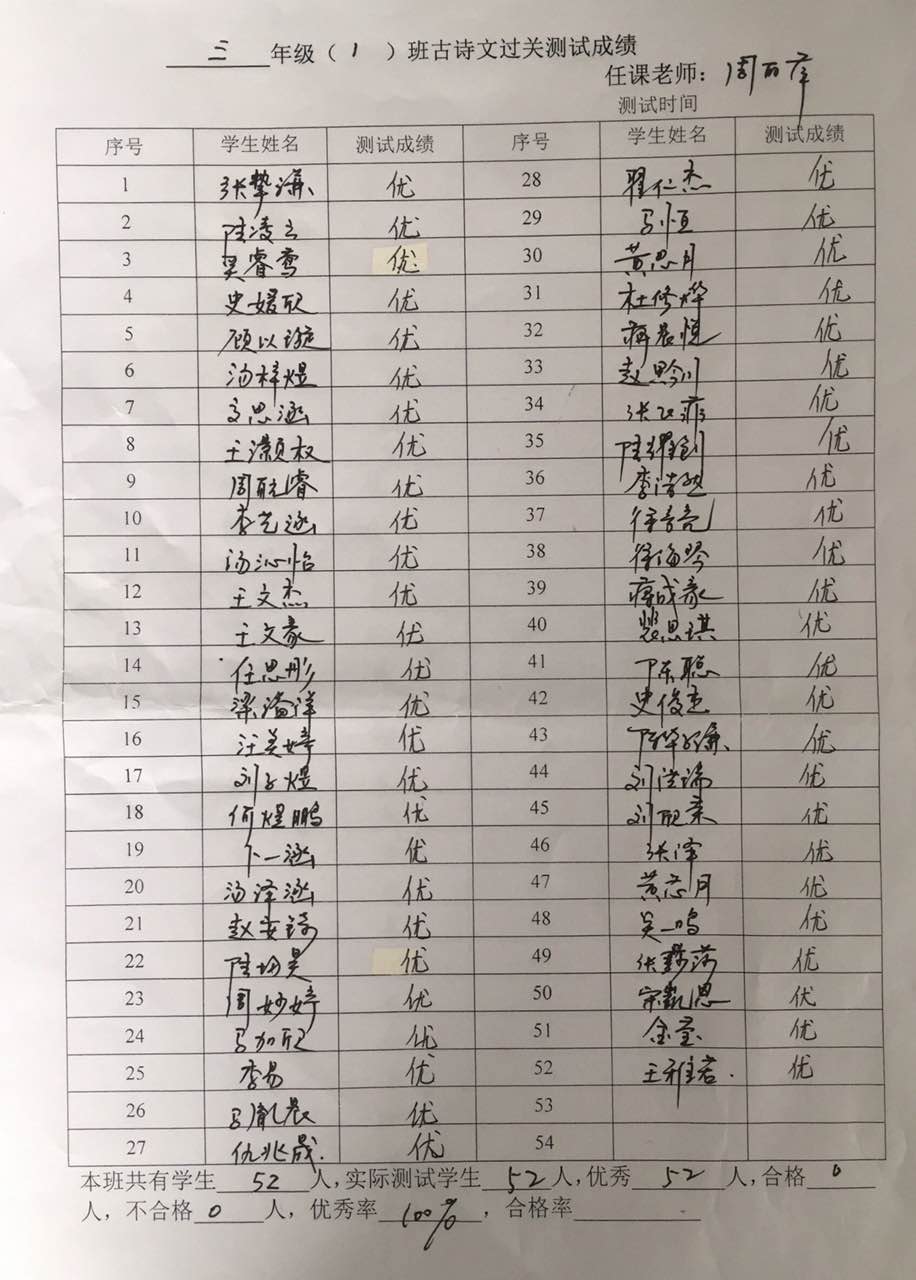 三 年级（ 1 ）班古诗文过关测试成绩
任课老师：周
测试时间
序号 学生姓名 测试成绩 序号 学生姓名 测试成绩
1 张挚谦 优 28 翟仁杰 优
2 陆凌云 优 29 马恒 优
3 吴睿鸾 优 30 黄思月 优
4 史媛欣 优 31 杜修烨 优
5 顾以璇 优 32 蒋晨悦 优
6 汤梓煜 优 33 赵黔川 优
7 高思涵 优 34 张 优
8 王灏权 优 35 陆 优
9 周睿 优 36 李浩 优
10 李艺涵 优 37 徐亮 优
11 汤沁怡 优 38 徐海 优
12 王文杰 优 39 蒋成豪 优
13 王文豪 优 40 裴思琪 优
14 任思彤 优 41 陈聪 优
15 梁洋 优 42 史俊杰 优
16 汪美婷 优 43 陈谦 优
17 刘子煜 优 44 刘浩 优
18 何煜鹏 优 45 刘 优
19 卜一涵 优 46 张泽 优
20 汤泽涵 优 47 黄芯月 优
21 赵安琦 优 48 吴一鸣 优
22 陆昊 优 49 张莎 优
23 周妙婷 优 50 宗凯恩 优
24 马加欣 优 51 金 优
25 李易 优 52 王雅君. 优
26 马胤晨 优 53
27 仇兆晟. 优 54
本班共有学生 52 人，实际测试学生 52 人，优秀 52 人，合格 0
人，不合格 0 人，优秀率 100% ，合格率